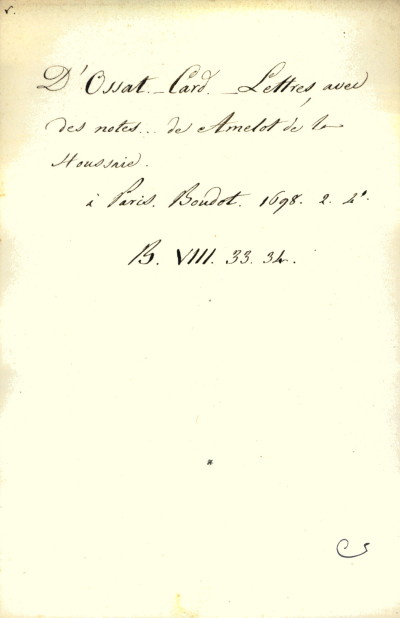 D'Ossat. Card. Lettres, avec
des notes... de Amelot de la
Houssaie.
à Paris. Boudot. 1698. 2. 4°.
B. VIII. 33. 34.